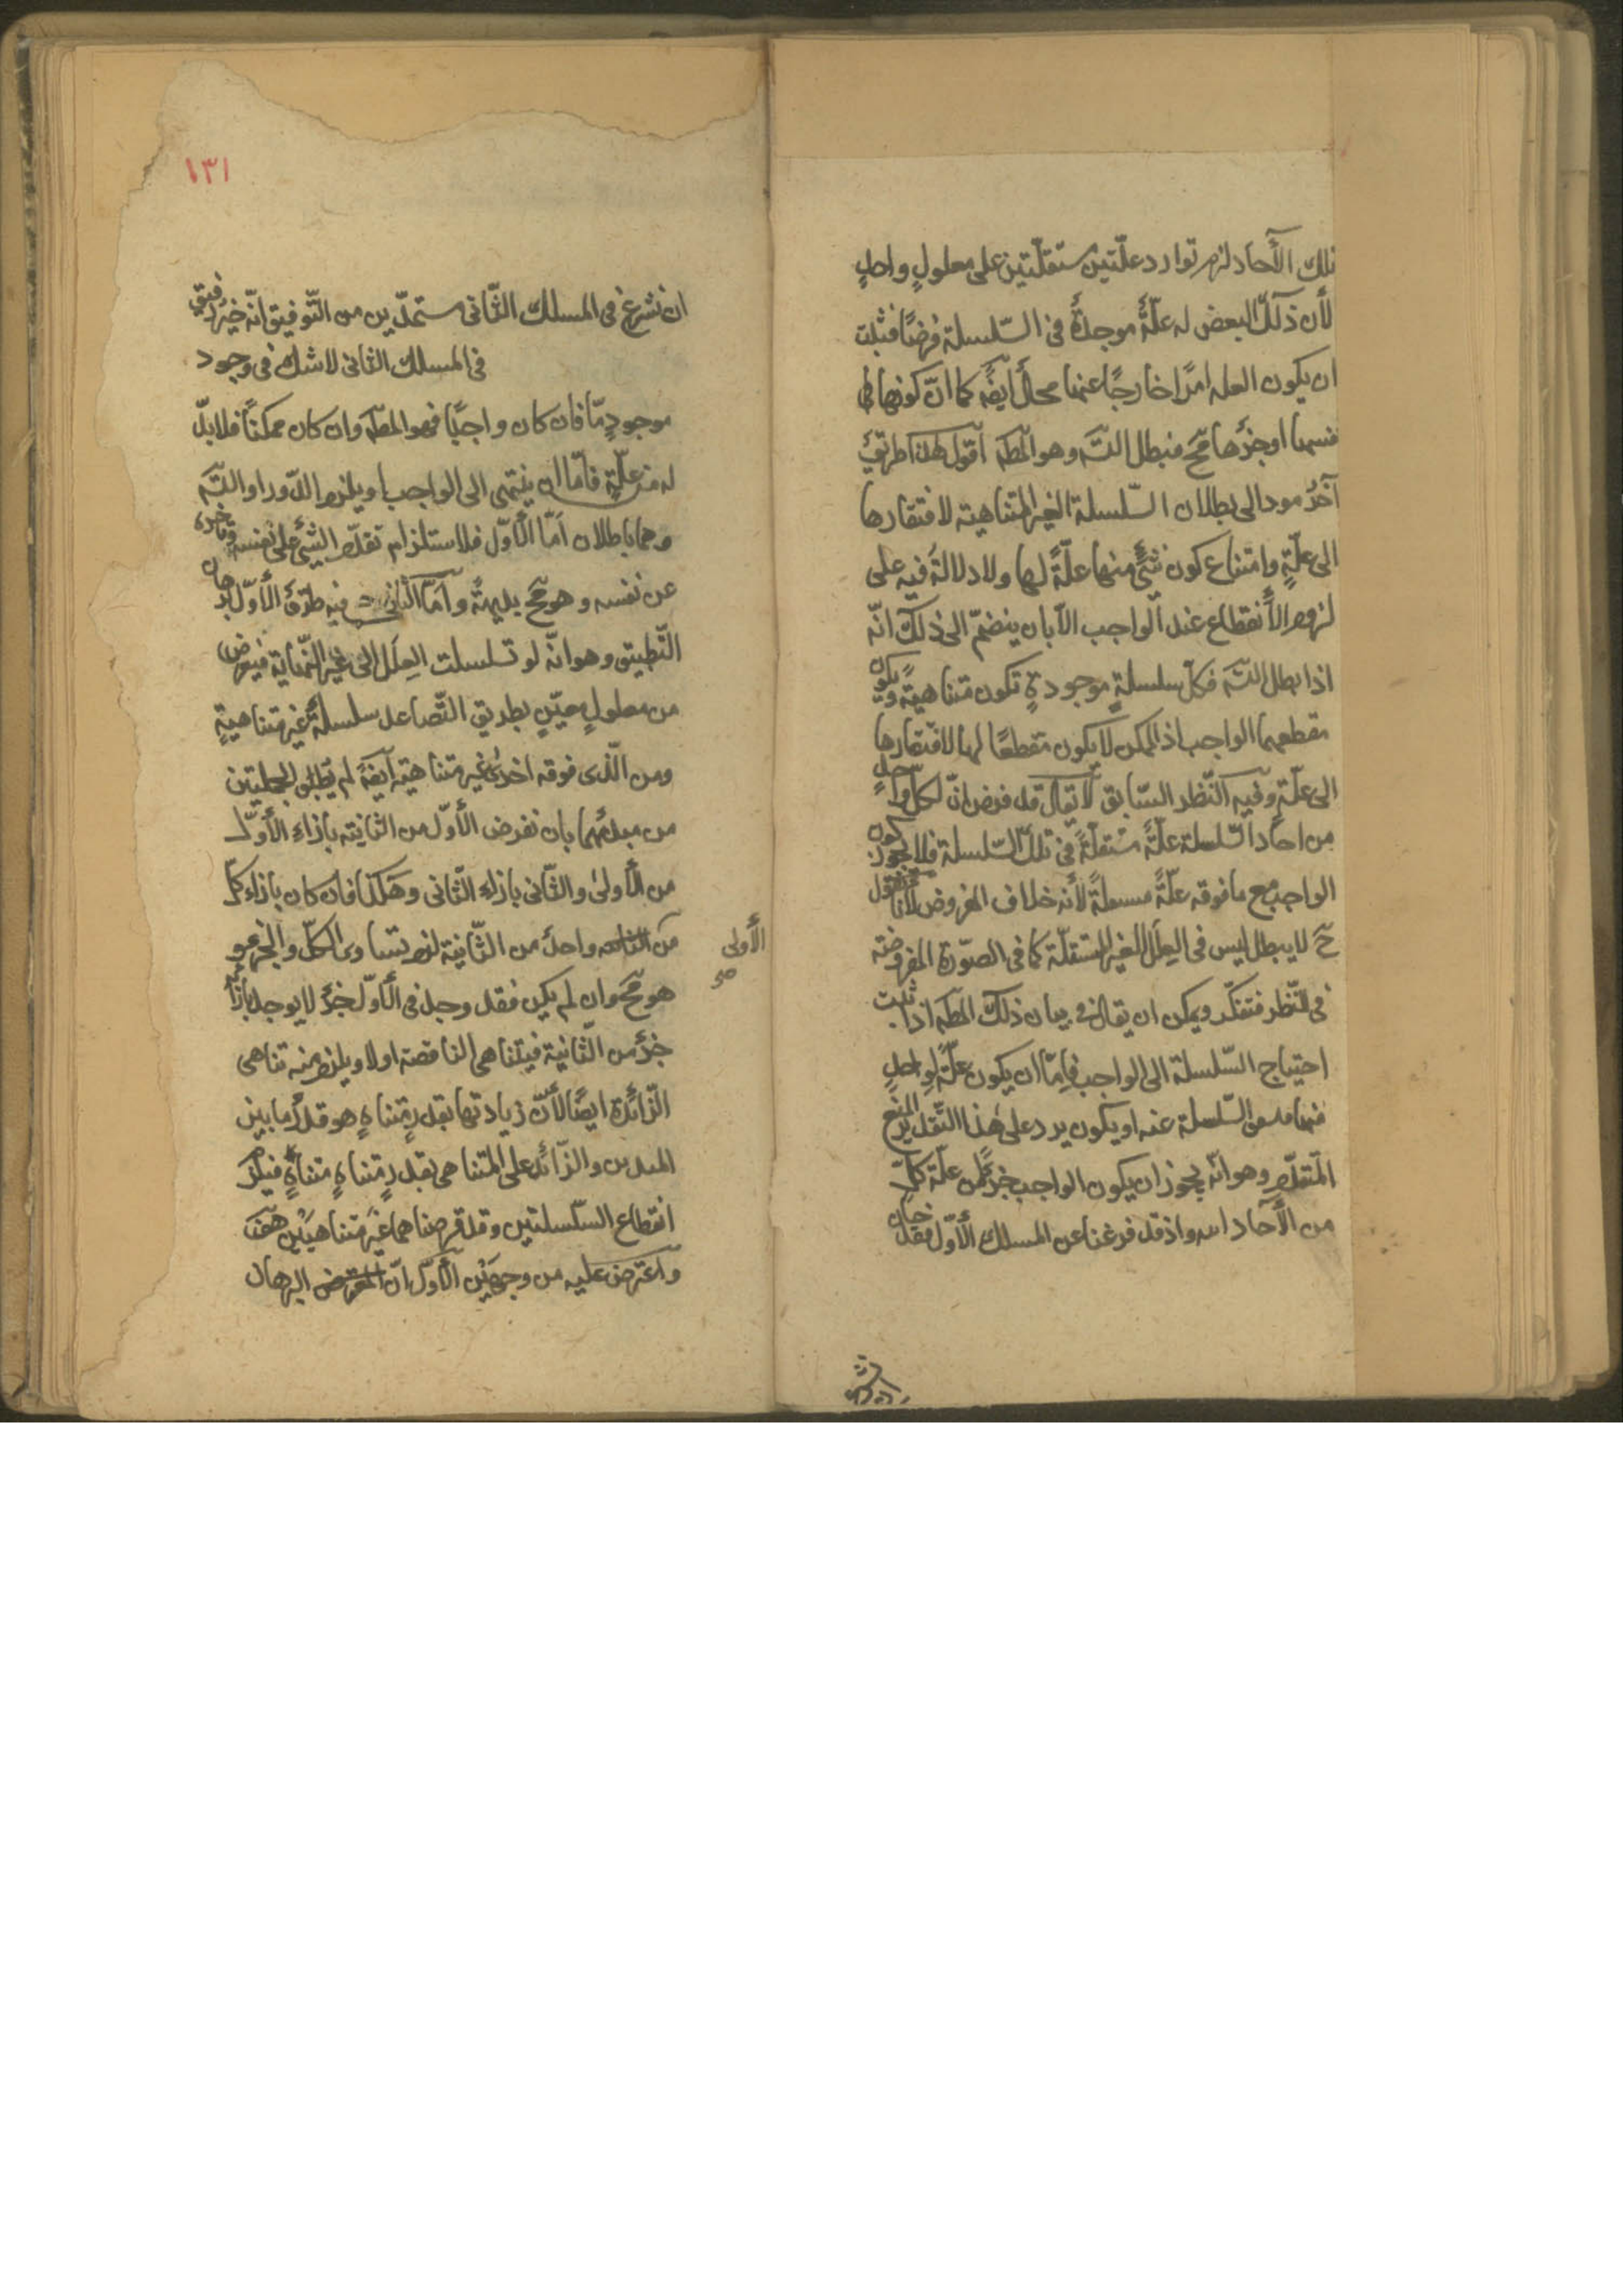 تلك الآحاد لزم توارد علّتين مستقلّتين على معلولٍ واحدٍ
لأن ذلك البعض له علّةٌ موجدةٌ في السّلسلة فرضًا فثبت
ان يكون العله امرًا خارجًا عنها محالٌ ايضًه كما انّ كونها في
نفسها او جزؤها مح فبطل التسه وهو المطه اقول هذا طريقٌ
آخرُ مود الى بطلان السّلسلة الغير المتناهية لافتقارها
الى علّةٍ وامتناع كون شئٍ منها علّةً لها ولا دلالة فيه على
لزوم الأنقطاع عند الواجب الّا بان ينضمّ الى ذلك انّه
اذا بطل التسه فكلّ سلسلةٍ موجودةٍ تكون متناهيةً ويكون
مقطعها الواجب اذ الممكن لا يكون مقطعًا لها لافتقارها
الى علّةٍ وفيه النّظر السّابق لا يقال قد فرض انّ لكلّ واحدٍ
من احاد السّلسلة علّةً مستقلّةً في تلك السّلسلة فلا يجوز كون
الواجب مع ما فوقه علّةً مسىملةً لأنه خلاف المفروض لأنا نقول
ح لا يبطل ليس في العِلَل الغير المستقلّة كما في الصّورة المفروضة
في النّظر فتفكّر ويمكن ان يقال في بيان ذلك المطه اذا ثبت
احتياج السّلسلة الى الواجب فامّا ان يكون علّةً لواحدٍ
منها السّلسلة عنه او يكون يرد على هٰذا التّقدير المنع
المتقدّم وهو انّه يجوز ان يكون الواجب جزءً من علّة كلّ
من الأحاد واذ قد فرغنا عن المسلك الأوّل فقد حان
١٣١
ان نشرع في المسلك الثّاني مستمدّين من التّوفيق انّه خيرُ رفيق
في المسلك الثاني لا شك في وجود
موجودٍ مّا فان كان واجبًا فهو المطه وان كان ممكنًا فلا بدّ
له من علّةٍ فامّا ان ينتهى الى الواجب او يلزم الدّور او التسه
وهما باطلان امّا الأوّل فلاستلزام تقدّم الشئ على نفسه وتأخره
عن نفسه وهو مح بديهةً وامّا الثاني فيه طرقٌ الأوّل برهان
التّطبيق وهو انّه لو تسلسلت العِلَل الى غير النّهاية فيفرض
من معلولٍ معيّنٍ بطريق التّصاعد سلسلةٌ غير متناهيةٍ
ومن الّذى فوقه اخرىٰ غير متناهية ايضًه لم يطبق الجملتين
من مبدئهما بان نفرض الأوّل من الثانية بازاء الأوّل
من الأولىٰ والثّاني بازاء الثّاني وهكذا فان كان بازاء كلّ
من واحدٌ من الثّانية لزم تساوى الكلّ والجزء و
الأولى
صح
هو مح وان لم يكن فقد وجد في الأوّل جزءٌ لا يوجد بازائه
جزءٌ من الثّانية فيتناهى الناقصة اولا ويلزم منه تناهى
الزّائدة ايضًا لأنّ زيادتها بقدرٍ متناهٍ هو قدرُ ما بين
المبدئين والزّائد على المتناهى بقدرٍ متناهٍ متناهٍ فيلزم
انقطاع السّلسلتين وقد فرضناهما غير متناهيتين هف
واعترض عليه من وجهين الأوّل انّ البرهان